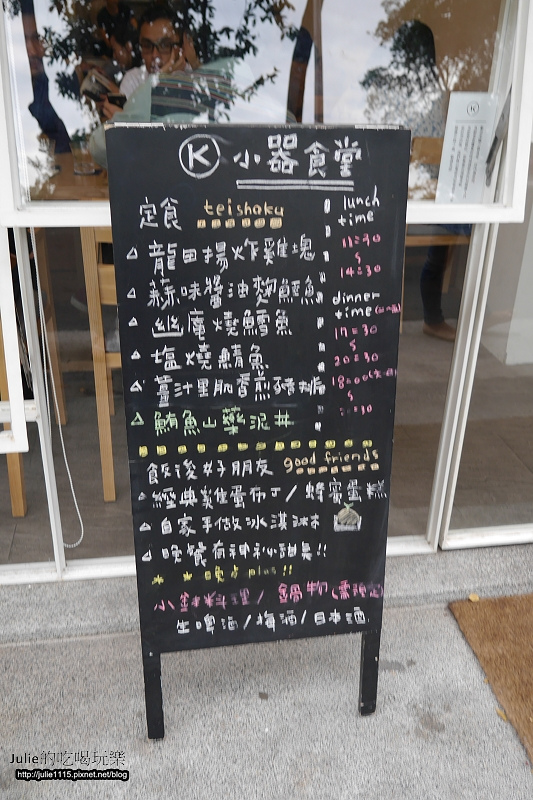 K 小器食堂
定食 teishoku
lunch time
11:30
14:30
龍田揚炸雞塊
蒜味醬油麴鱸魚
幽庵燒鱈魚
塩燒鯖魚
薑汁里肌香煎豬排
鮪魚山藥泥丼
dinner time
17:30
20:30
飯後好朋友 good friends
經典雞蛋布丁/蜂蜜蛋糕
自家手做冰淇淋
晚餐有神秘甜点!!
* * 晚点plus!!
小缽料理/鍋物(需預定)
生啤酒/梅酒/日本酒
K
Julie的吃喝玩樂
http://julie1115.pixnet.net/blog